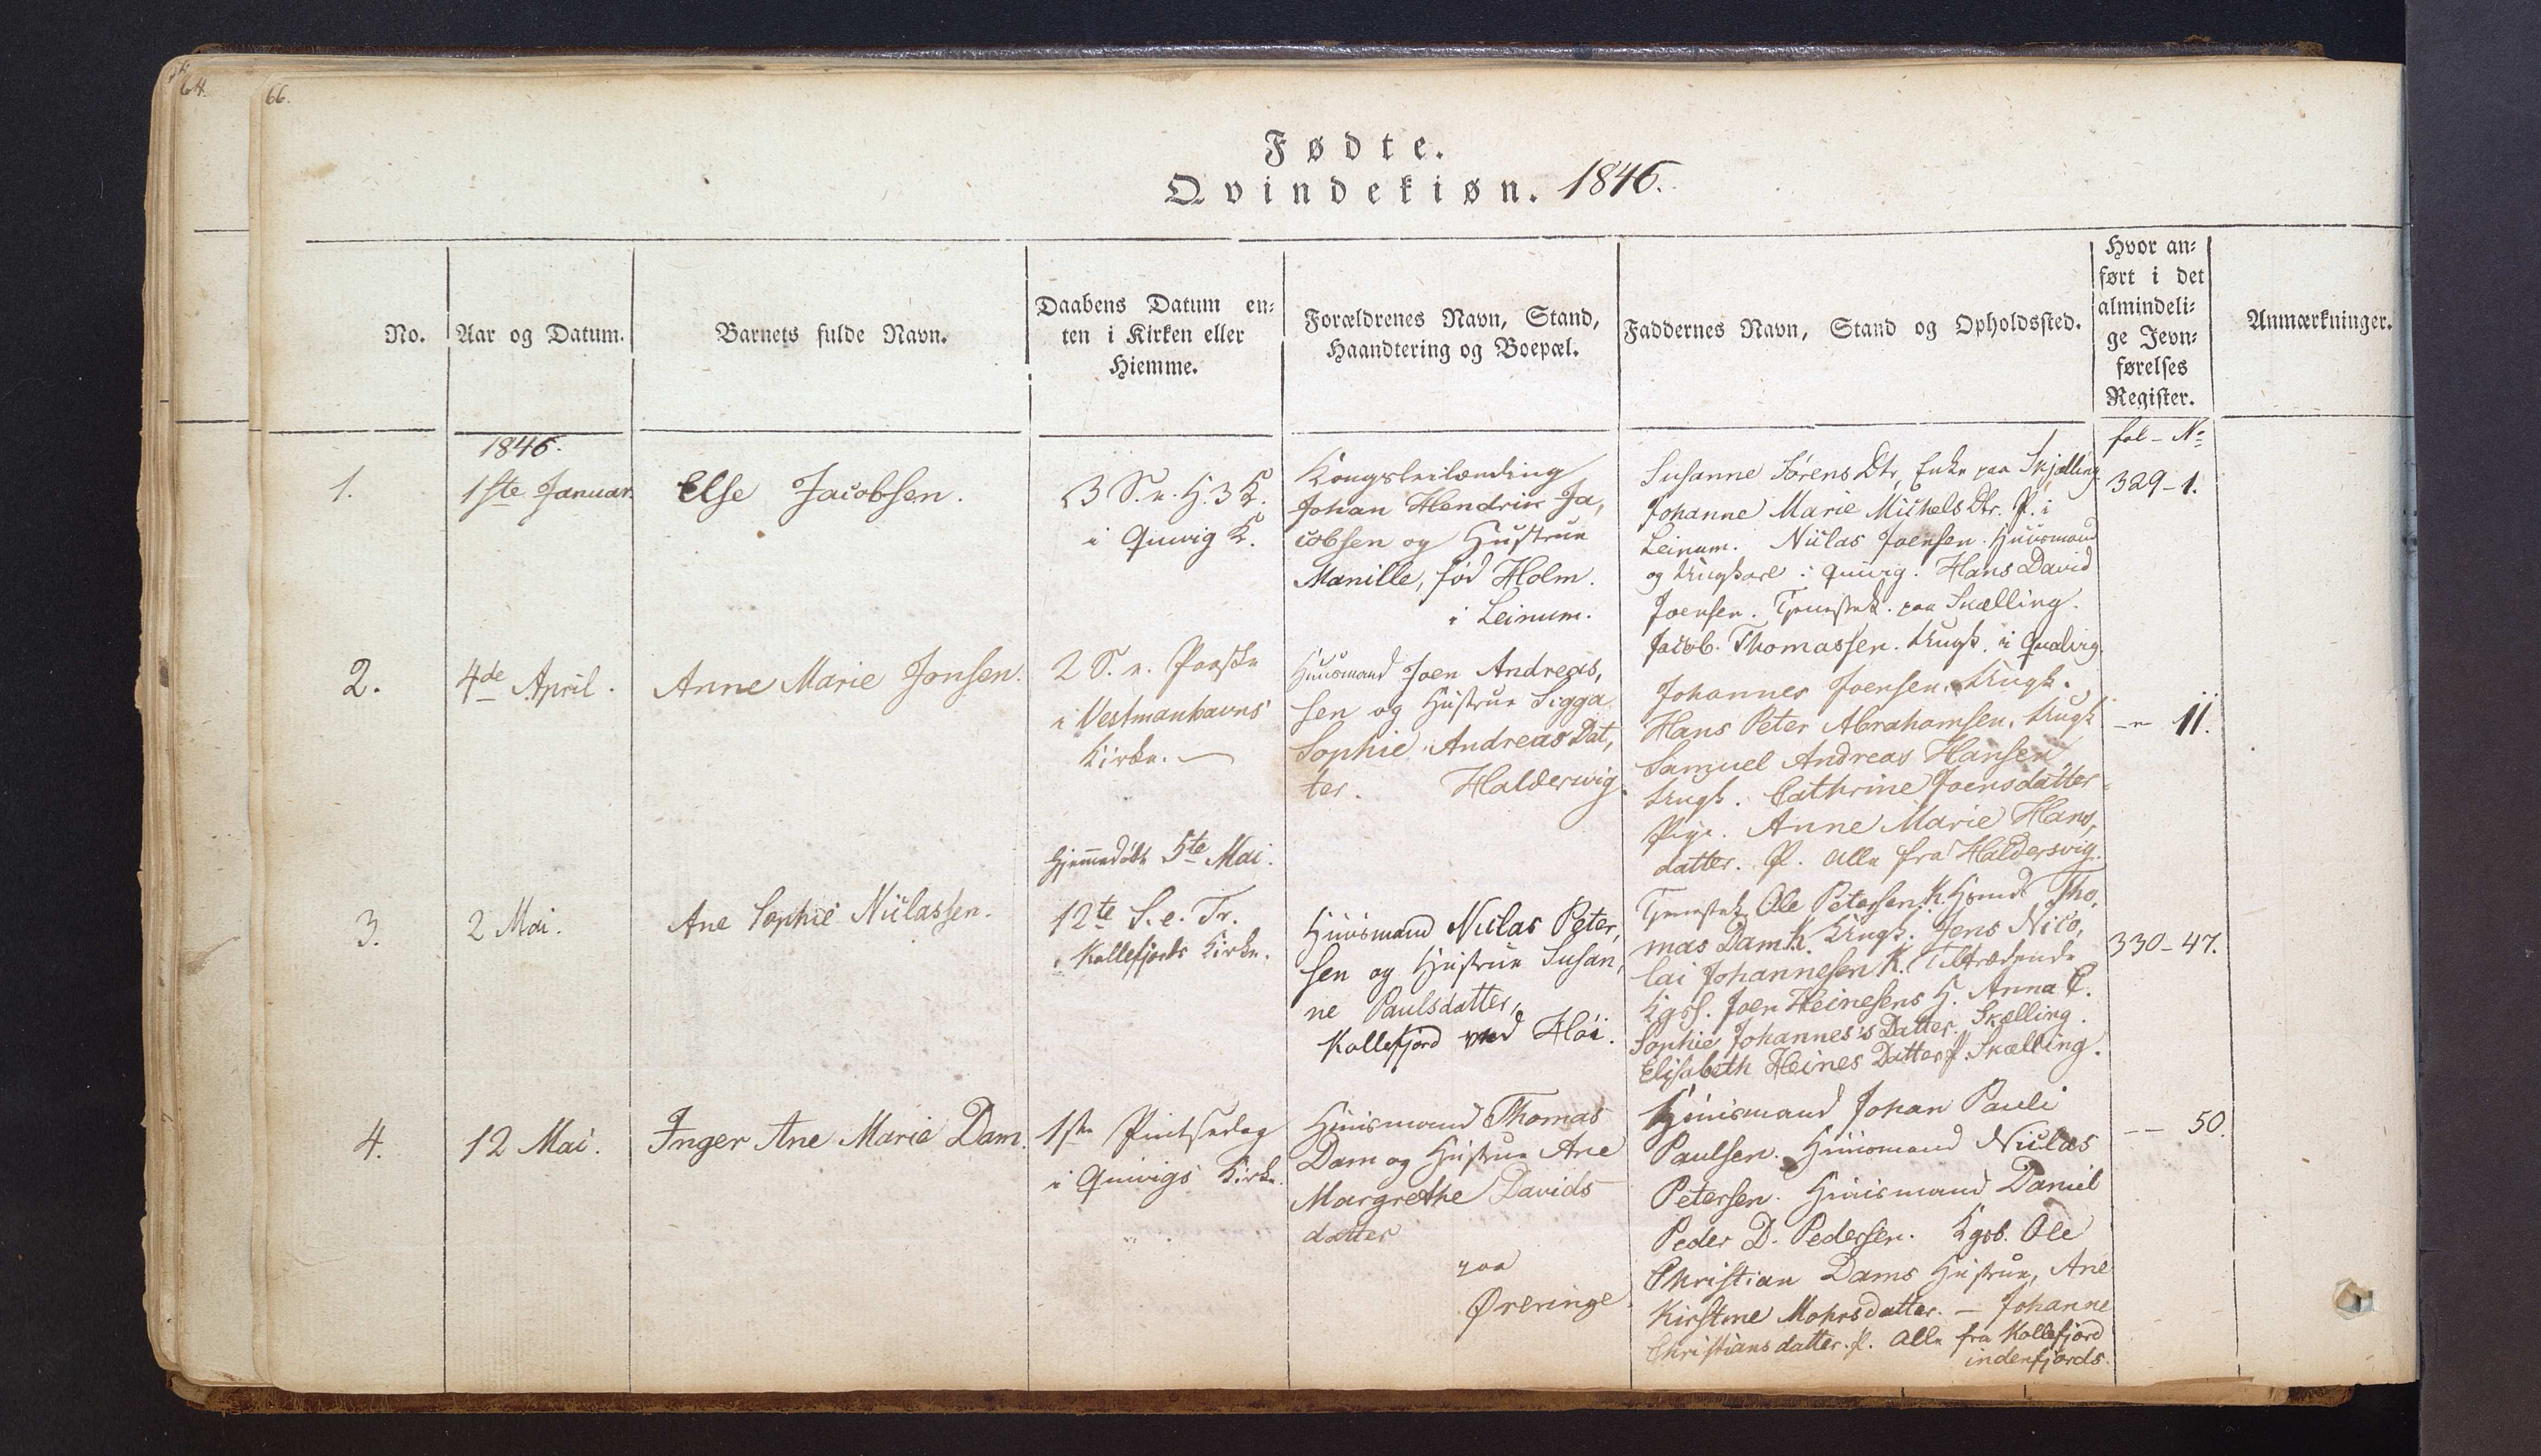 64.
66.
Fødte.
Qvindekiøn. 1846.
No.
Aar og Datum.
Barnets fulde Navn.
Daabens Datum en-
ten i Kirken eller
Hiemme.
Forældrenes Navn, Stand,
Haandtering og Boepæl.
Faddernes Navn, Stand og Opholdssted.
Hvor an-
ført i det
almindeli-
ge Jevn-
førelses
Register.
Anmærkninger.
fol - No
1.
1846.
1ste Januar.
Else Jacobsen.
3 S. e. H. 3 K.
i Qvivig K.
Johan Hendrik Ja,
cobsen og Hustrue
Manille, fød Holm.
i Leinum.
Susanne Sørens Dtr, Enke paa Skjælling
Johanne Marie Michels Dtr. P. i
Leinum. Niclas Joensen. Huusmand
og Ungkarl i Qvivig. Hans David
Joensen. Tjenestek. paa Skælling.
Jacob Thomassen. Ungk. i Qvalvig.
329-1.
2.
4de April.
Anne Marie Jonsen.
2 S. e. Paaske
i Vestmanhavns
Kirke.
Huusmand Joen Andreas,
sen og Hustrue Sigga
Sophie Andreas Dat,
ter. Haldersvig.
Johannes Joensen. Ungk.
Hans Peter Abrahamsen. Ungk
Samuel Andreas Hansen
Ungk. Cathrine Joensdatter
Pige. Anne Marie Hans,
datter. P. Alle fra Haldersvig.
-"- 11.
3.
2 Mai.
Ane Sophie Niclassen.
Hjemmedøbt 5te Mai.
12te S. e. Tr.
i Kollefjords Kirke.
Huusmand Niclas Peter,
sen og Hustrue Susan,
ne Paulsdatter,
Kollefjord ved Høi.
Tjenestek. Ole Petersen K. Hsmd. Tho,
mas Dam K. Ungk. Jens Nico,
lai Johannesen K. Tiltrædende
Kgsf. Joen Heinesens H. Anna C.
Sophie Johannes's Datter. Skælling.
Elisabeth Heines Datter P. Skælling.
330-47.
4.
12 Mai.
Inger Ane Marie Dam.
1ste Pintsedag
i Qvivigs Kirke.
Huusmand Thomas
Dam og Hustrue Ane
Margrethe Davids
datter
paa
Øreringe.
Huusmand Johan Pauli
Paulsen. Huusmand Niclas
Petersen. Huusmand Daniel
Peder D. Pedersen. Kgsb. Ole
Christian Dams Hustrue, Ane
Kirstine Mohrsdatter. - Johanne
Christiansdatter. P. Alle fra Kollefjord
indenfjords.
-- 50.